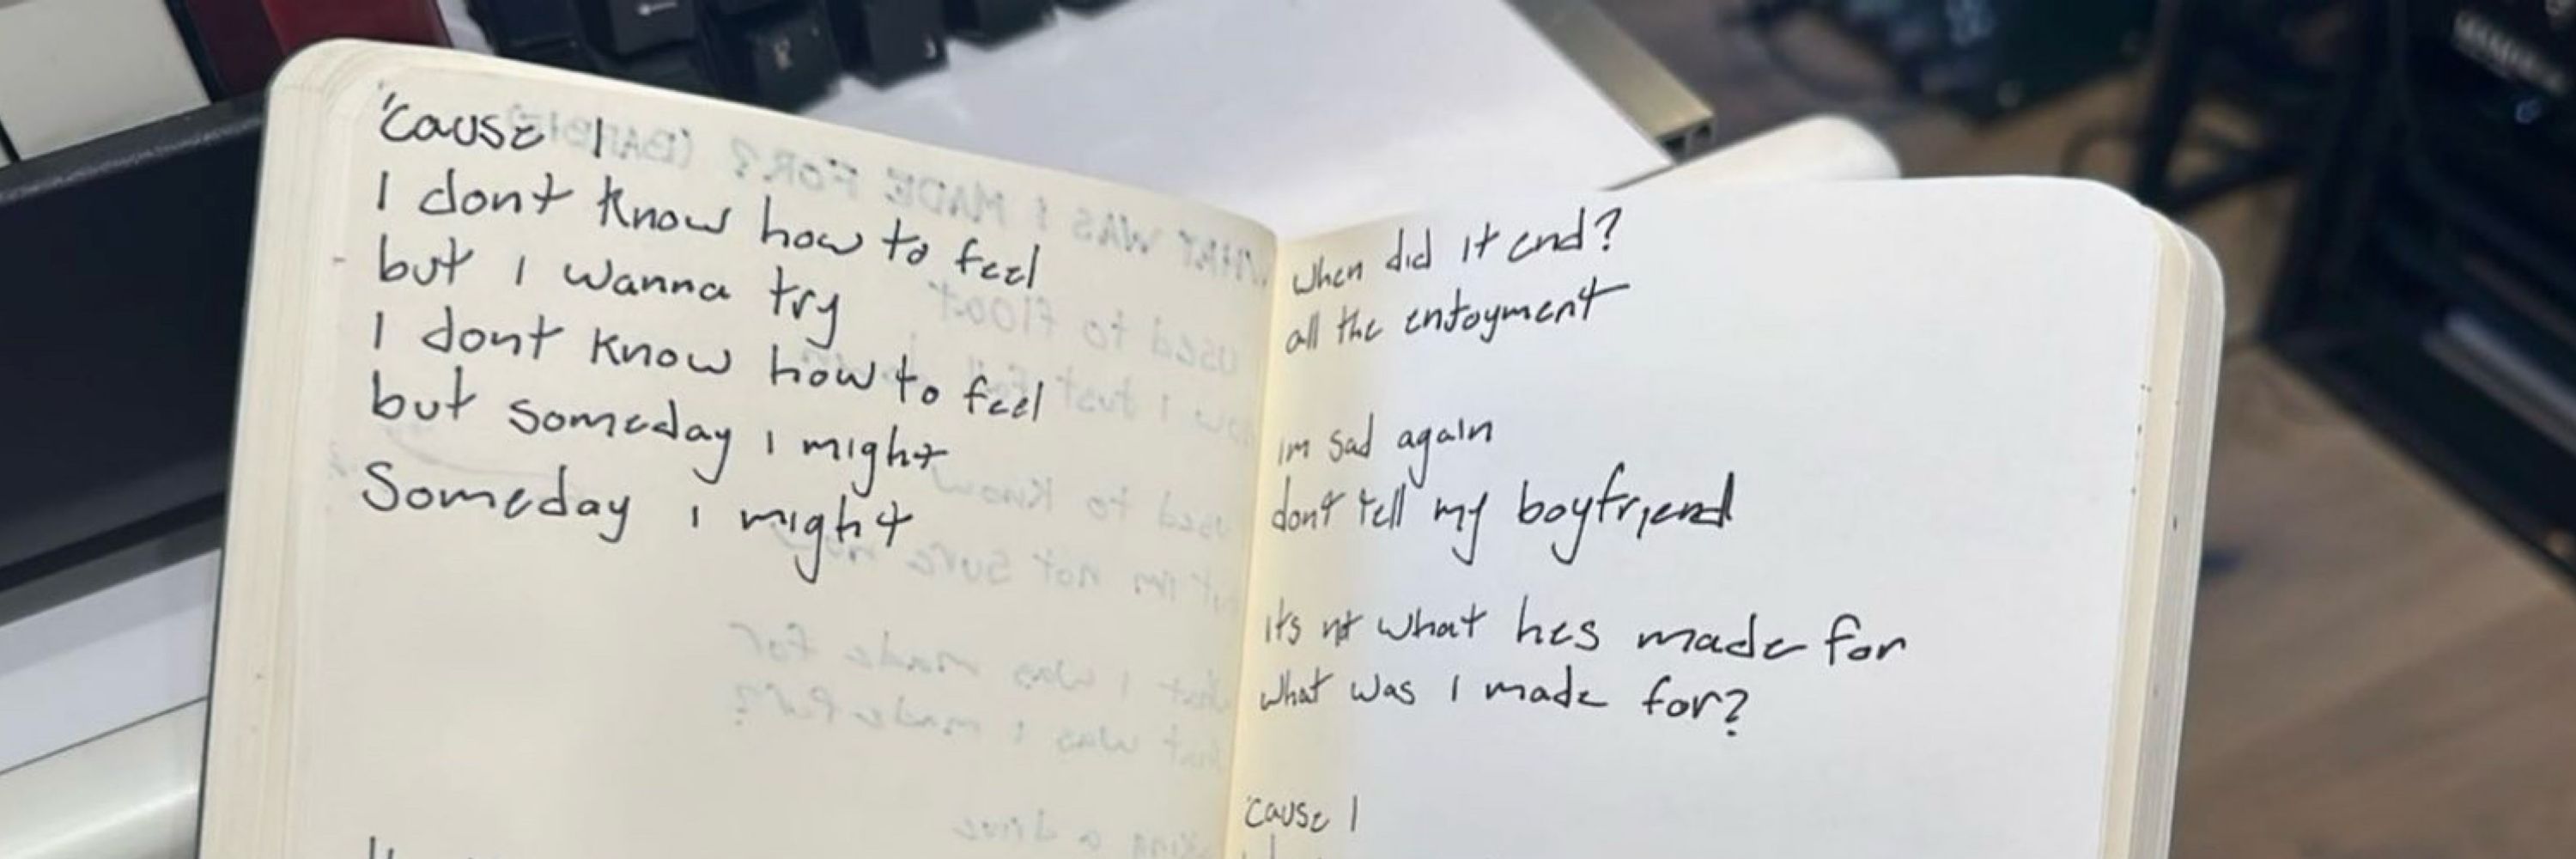 'cause I
I dont know how to feel
but I wanna try
I dont know how to feel
but someday I might
Someday I might
when did it end?
all the enjoyment
im sad again
don't tell my boyfriend
its not what hes made for
what was I made for?
'cause I